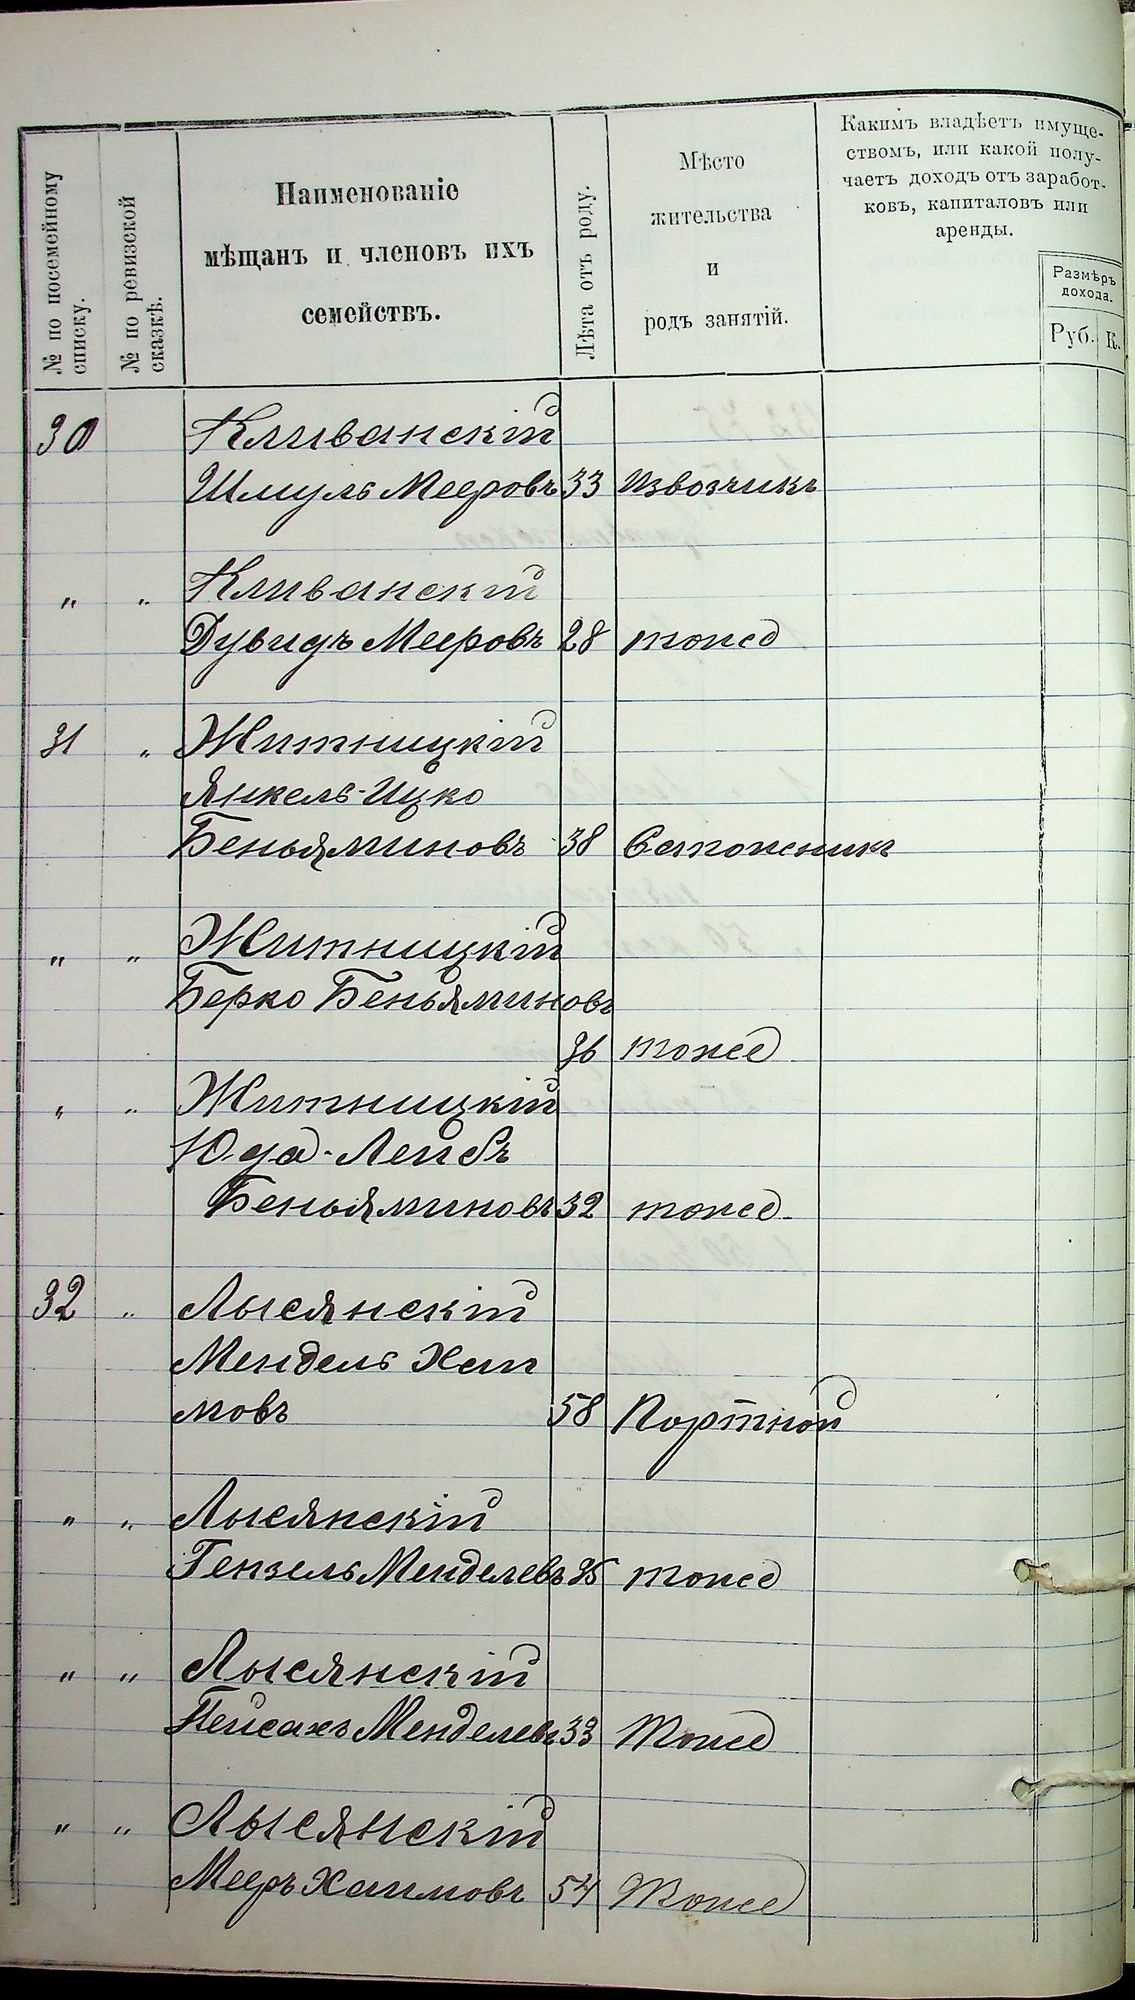 № по посемейному
списку.
№ по ревизской
сказкѣ.
Наименованіе
мѣщанъ и членовъ ихъ
семействъ.
Лѣта отъ роду.
Мѣсто
жительства
и
родъ занятій.
Какимъ владѣетъ имуще-
ствомъ, или какой полу-
чаетъ доходъ отъ заработ-
ковъ, капиталовъ или
аренды.
Размѣръ
дохода.
Руб. К.
30 Кливанскій
Шмуль Мееровъ 33 Извозчикъ
„ „ Кливанскій
Дувидъ Мееровъ 28 тоже
31 „ Житницкій
Янкель-Ицко
Беньяминовъ 38 Сапожникъ
„ „ Житницкій
Берко Беньяминовъ
36 тоже
„ „ Житницкій
Юда-Лейбъ
Беньяминовъ 32 тоже
32 „ Лысянскій
Мендель Хаи
мовъ 58 Портной
„ „ Лысянскій
Гензель Менделевъ 35 тоже
„ „ Лысянскій
Пейсахъ Менделевъ 33 Тоже
„ „ Лысянскій
Мееръ Хаимовъ 54 Тоже